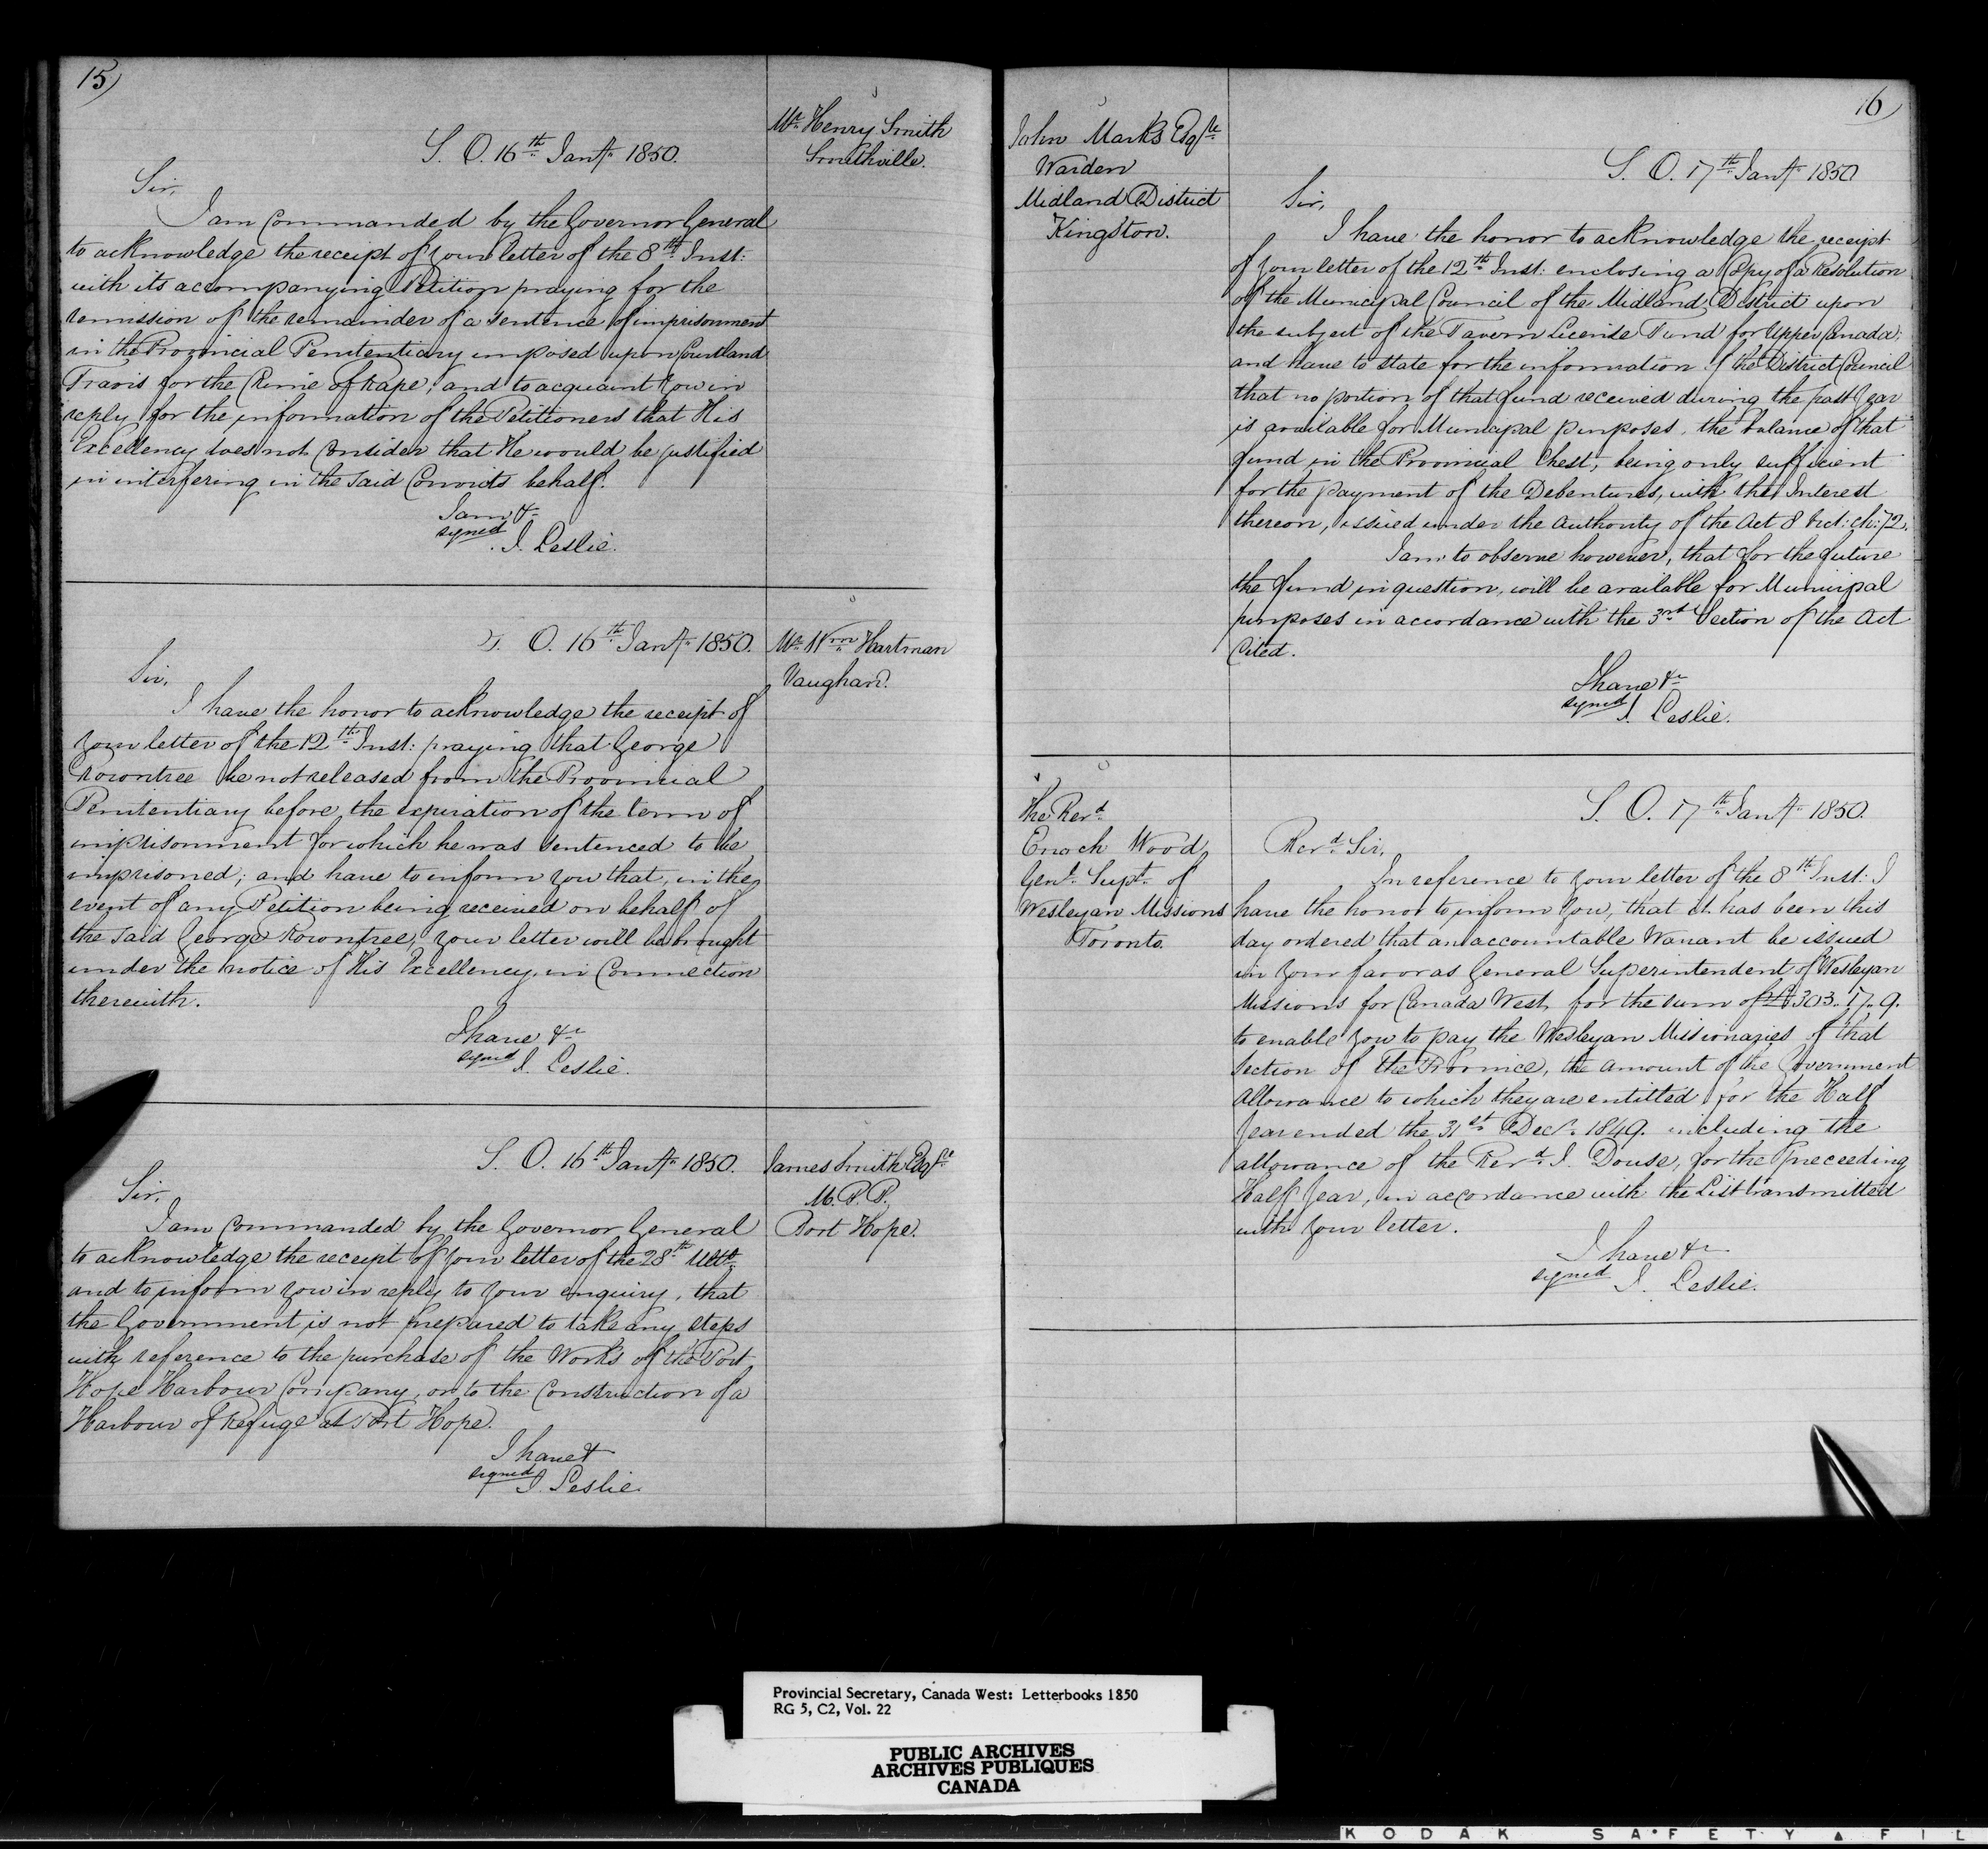 15)
Mr. Henry Smith
Smithville.
S. O. 16th Jany. 1850.
Sir,
I am Commanded by the Governor General
to acknowledge the receipt of your letter of the 8th Inst:
with its accompanying Petition praying for the
remission of the remainder of a sentence of imprisonment
in the Provincial Penitentiary imposed upon Courtland
Travis for the Crime of Rape; and to acquaint you in
reply for the information of the Petitioners that His
Excellency does not Consider that He would be justified
in interfering in the said Convicts behalf.
I am &c
signed
J. Leslie.
S. O. 16th Jany. 1850.
Mr. Wm. Hartman
Vaughan.
Sir,
I have the honor to acknowledge the receipt of
your letter of the 12th Inst: praying that George
Rowntree be not released from the Provincial
Penitentiary before the expiration of the term of
imprisonment for which he was sentenced to be
imprisoned; and have to inform you that, in the
event of any Petition being received on behalf of
the said George Rowntree, your letter will be brought
under the notice of His Excellency, in Connection
therewith.
I have &c
signed
J. Leslie.
S. O. 16th Jany. 1850.
James Smith Esqre.
M. P. P.
Port Hope.
Sir,
I am Commanded by the Governor General
to acknowledge the receipt of your letter of the 28th Ulto.
and to inform you in reply to your enquiry, that
the Government is not prepared to take any steps
with reference to the purchase of the Works of the Port
Hope Harbour Company, or to the Construction of a
Harbour of Refuge at Port Hope.
I have &
signed
J. Leslie.
16
John Marks Esqre.
Warden
Midland District
Kingston.
S. O. 17th Jany. 1850
Sir,
I have the honor to acknowledge the receipt
of your letter of the 12th Inst: enclosing a Copy of a Resolution
of the Municipal Council of the Midland District upon
the subject of the Tavern License Fund for Upper Canada;
and have to state for the information of the District Council
that no portion of that fund received during the past Year
is available for Municipal purposes, the balance of that
fund in the Provincial Chest, being only sufficient
for the payment of the Debentures, with the Interest
thereon, issued under the Authority of the Act 8 Vict: ch: 72.
I am to observe however, that for the future
the fund in question, will be available for Municipal
purposes in accordance with the 3rd Section of the Act
Cited.
I have &c
signed
J. Leslie.
The Revd.
Enoch Wood,
Genl. Supt. of
Wesleyan Missions
Toronto.
S. O. 17th Jany. 1850.
Revd. Sir,
In reference to your letter of the 8th Inst: I
have the honor to inform You, that it has been this
day ordered that an accountable Warrant be issued
in your favor as General Superintendent of Wesleyan
Missions for Canada West, for the sum of £303. 17. 9.
to enable you to pay the Wesleyan Missionaries of that
Section of the Province, the amount of the Government
Allowance to which they are entitled for the Half
Year ended the 31st Decr. 1849. including the
allowance of the Revd. J. Douse, for the preceeding
Half Year, in accordance with the List transmitted
with your letter.
I have &c
signed
J. Leslie.
Provincial Secretary, Canada West: Letterbooks 1850
RG 5, C2, Vol. 22
PUBLIC ARCHIVES
ARCHIVES PUBLIQUES
CANADA
KODAK SAFETY ▲ FIL